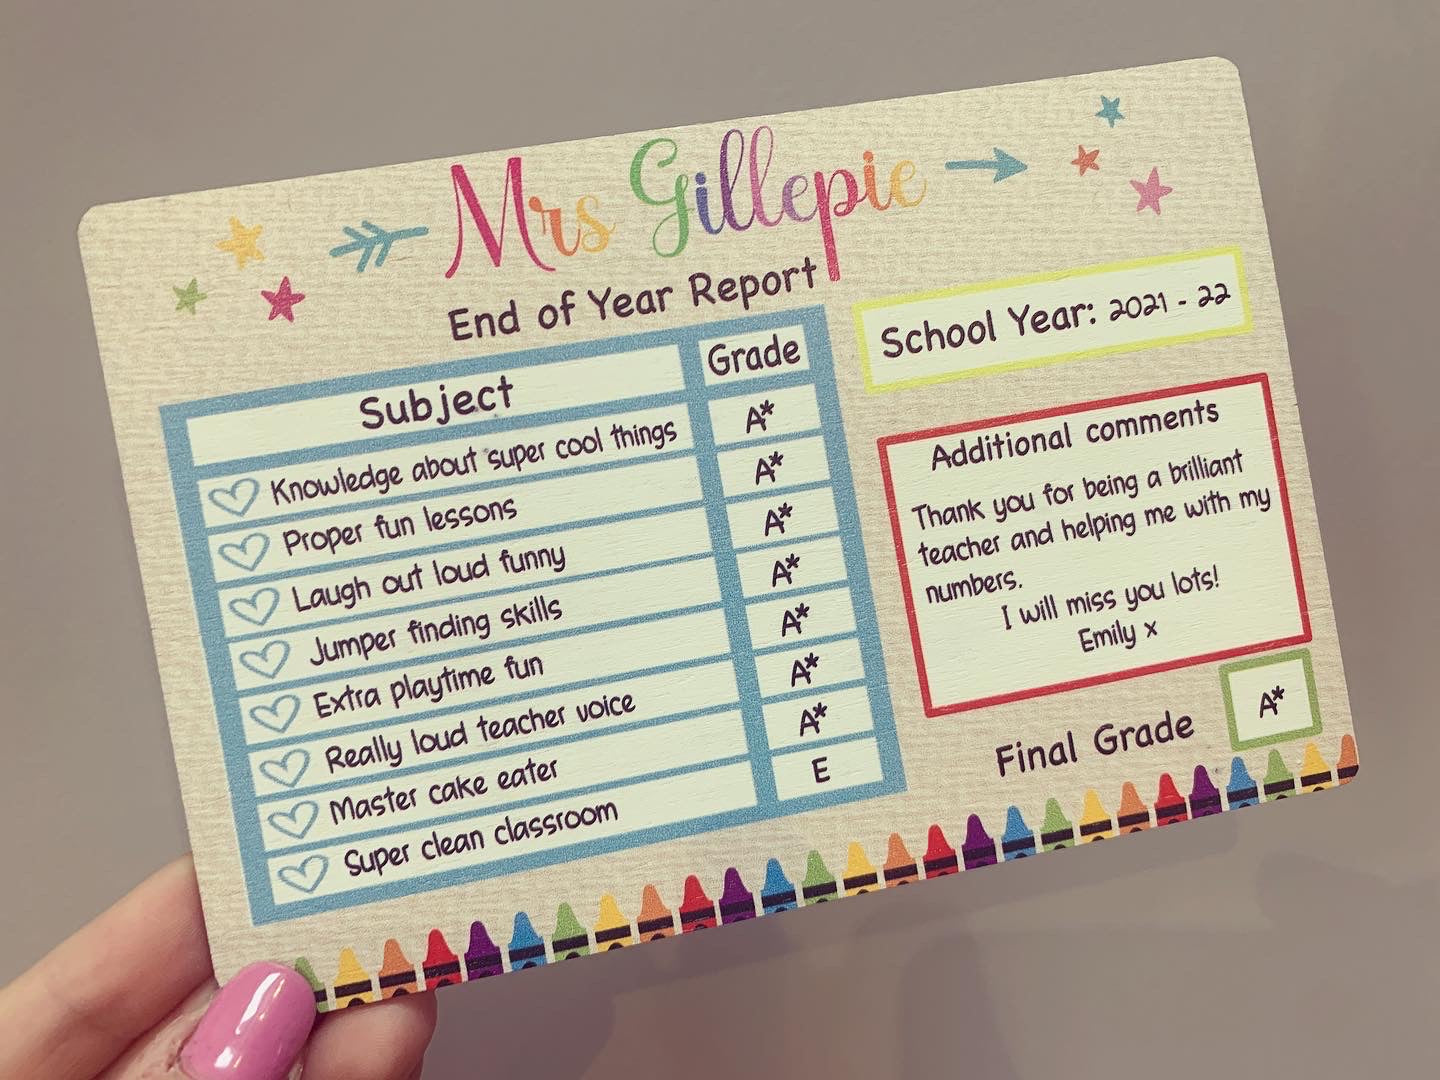 Mrs Gillepie
End of Year Report
Subject Grade
Knowledge about super cool things A*
Proper fun lessons A*
Laugh out loud funny A*
Jumper finding skills A*
Extra playtime fun A*
Really loud teacher voice A*
Master cake eater A*
Super clean classroom E
School Year: 2021 - 22
Additional comments
Thank you for being a brilliant
teacher and helping me with my
numbers.
I will miss you lots!
Emily x
Final Grade A*